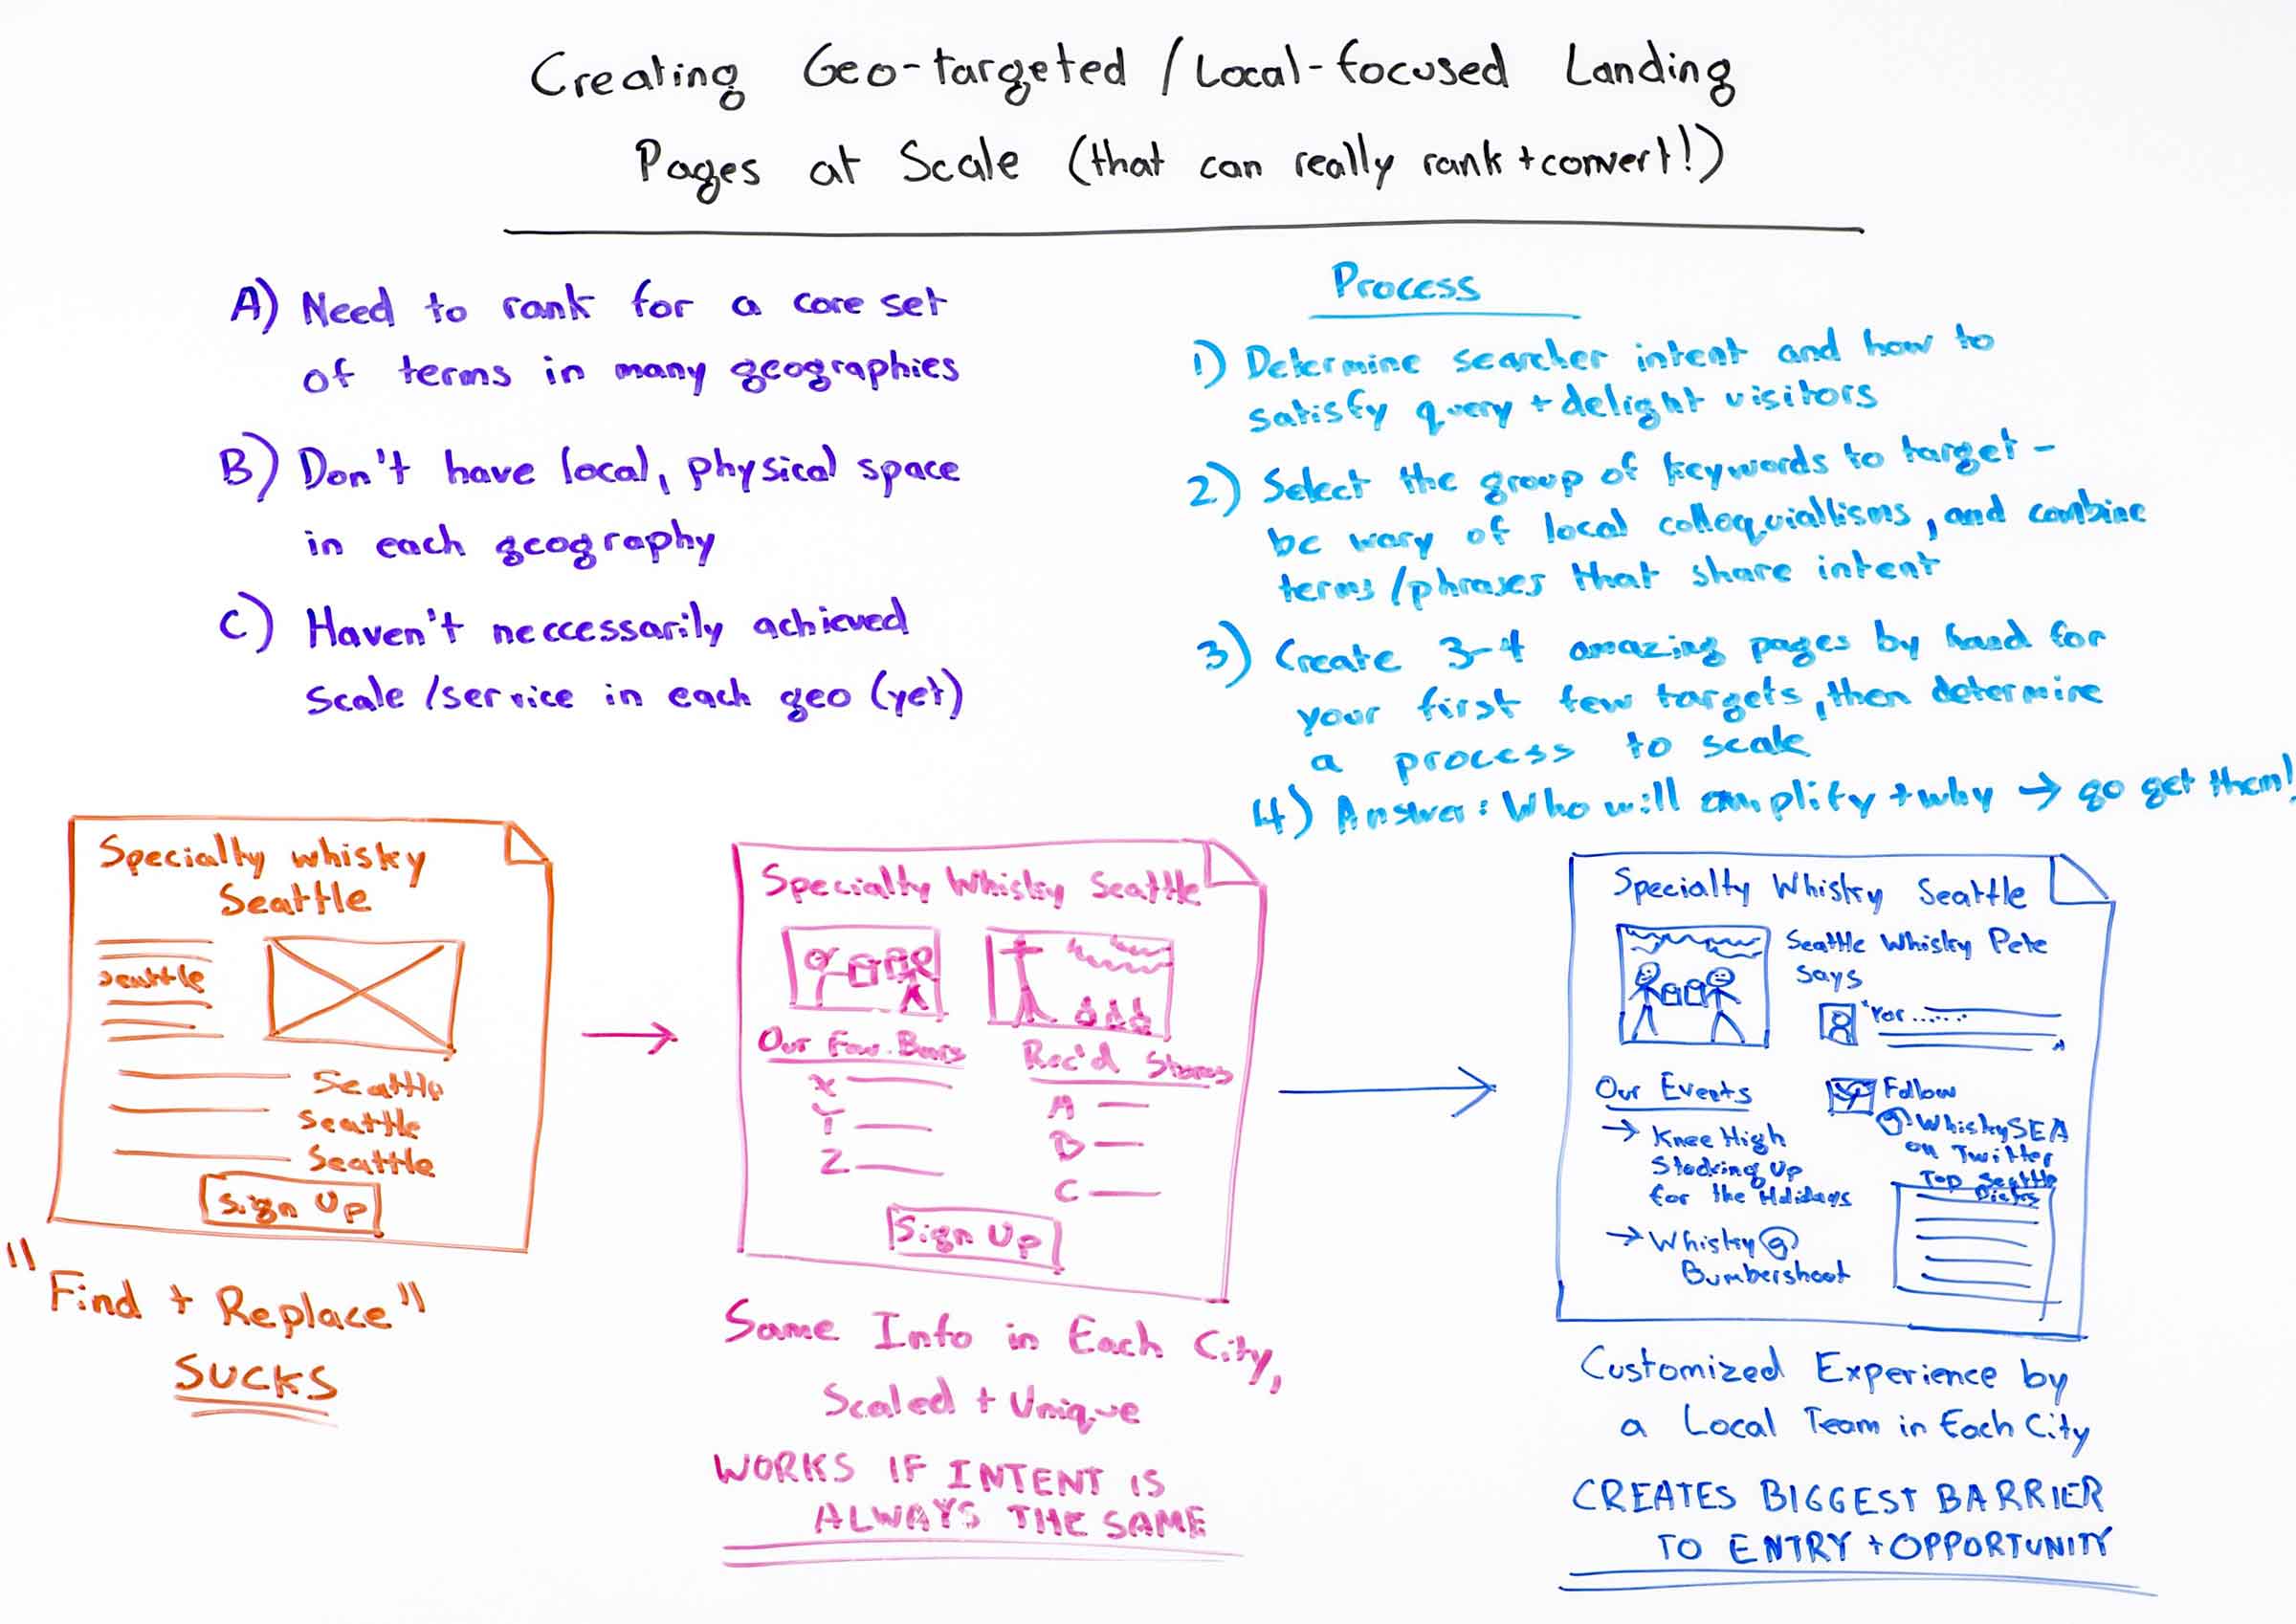 Creating Geo-targeted / Local-focused Landing
Pages at Scale (that can really rank + convert!)
A) Need to rank for a core set
of terms in many geographies
B) Don't have local, physical space
in each geography
C) Haven't neccessarily achieved
scale / service in each geo (yet)
Process
1) Determine searcher intent and how to
satisfy query + delight visitors
2) Select the group of keywords to target -
be wary of local colloquiallisms, and combine
terms / phrases that share intent
3) Create 3-4 amazing pages by hand for
your first few targets, then determine
a process to scale
4) Answer: Who will amplify + why → go get them!
Specialty whisky
Seattle
Seattle
Seattle
Seattle
Seattle
Sign Up
"Find + Replace"
SUCKS
Specialty Whisky Seattle
Our Fav. Bars
X
Y
Z
Rec'd Stores
A
B
C
Sign Up
Same Info in Each City,
Scaled + Unique
WORKS IF INTENT IS
ALWAYS THE SAME
Specialty Whisky Seattle
Seattle Whisky Pete
says
"Yar ......
Our Events
→ Knee High
Stocking Up
for the Holidays
→ Whisky @
Bumbershoot
Follow
@WhiskySEA
on Twitter
Top Seattle
Picks
Customized Experience by
a Local Team in Each City
CREATES BIGGEST BARRIER
TO ENTRY + OPPORTUNITY